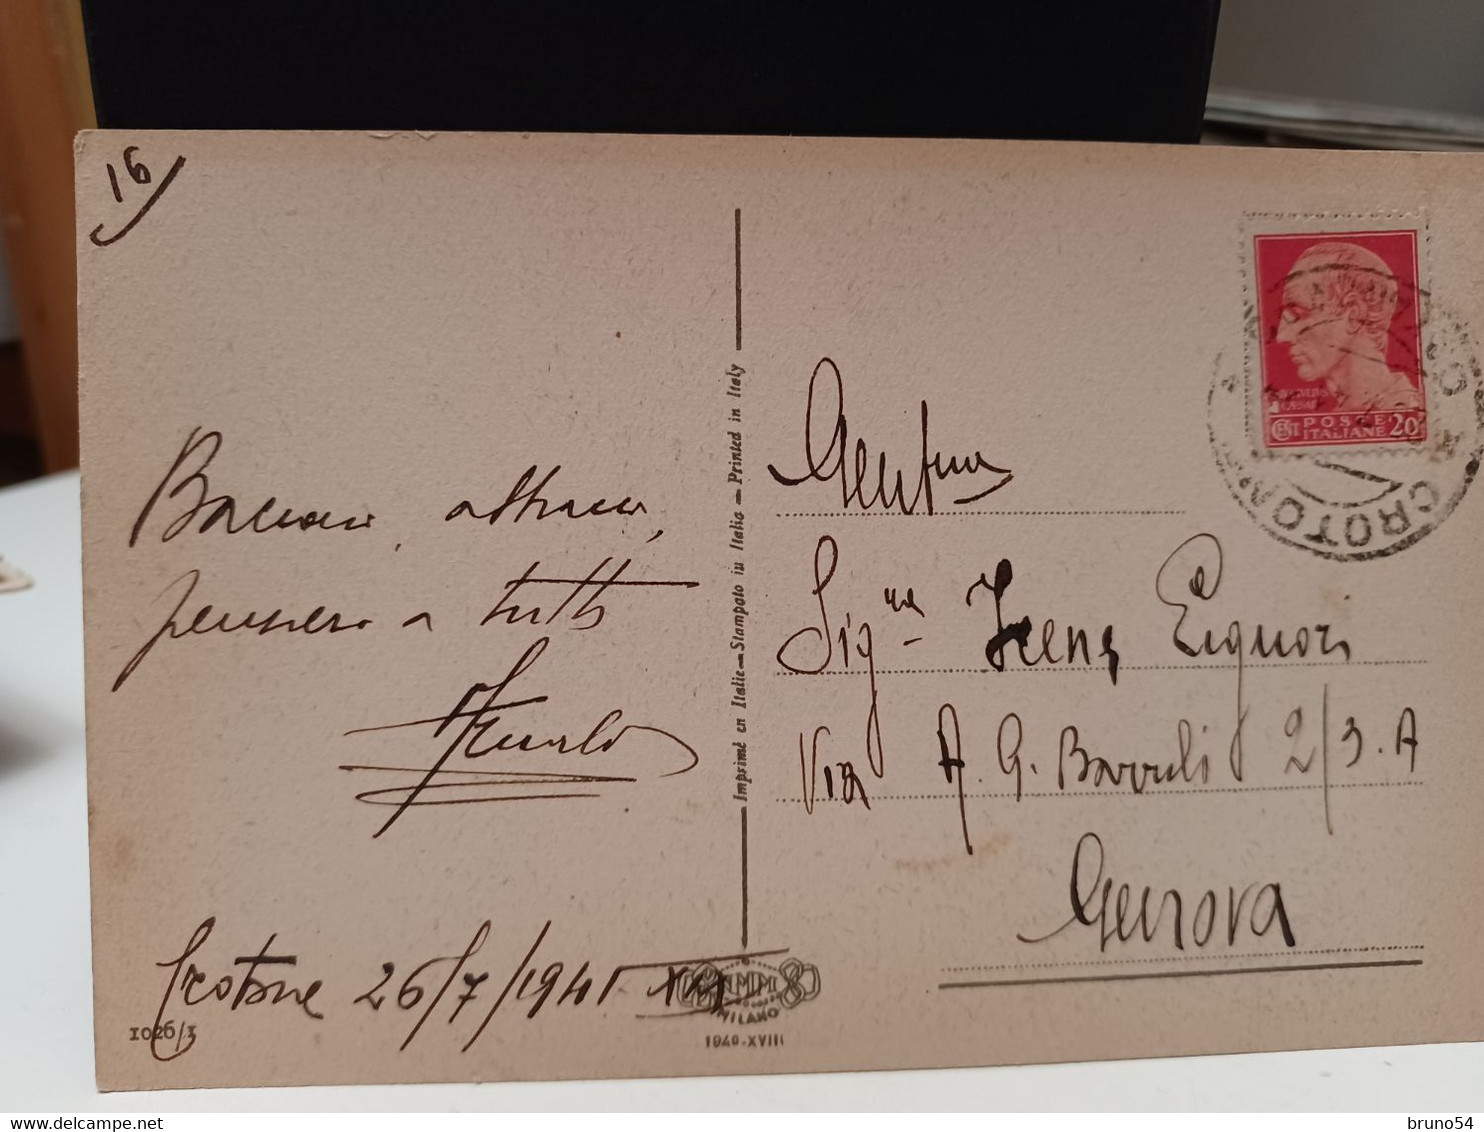 16
Bacioni, abbracci,
pensiero a tutti
Crotone 26/7/1941 XIX
1026/3
Imprimé en Italie — Stampato in Italia — Printed in Italy
MILANO
1940-XVIII
POSTE
ITALIANE 20
CROTONE
Gent.ma
Sig.na Irene Liguori
Via A. G. Barrili 2/3. A
Genova
bruno54